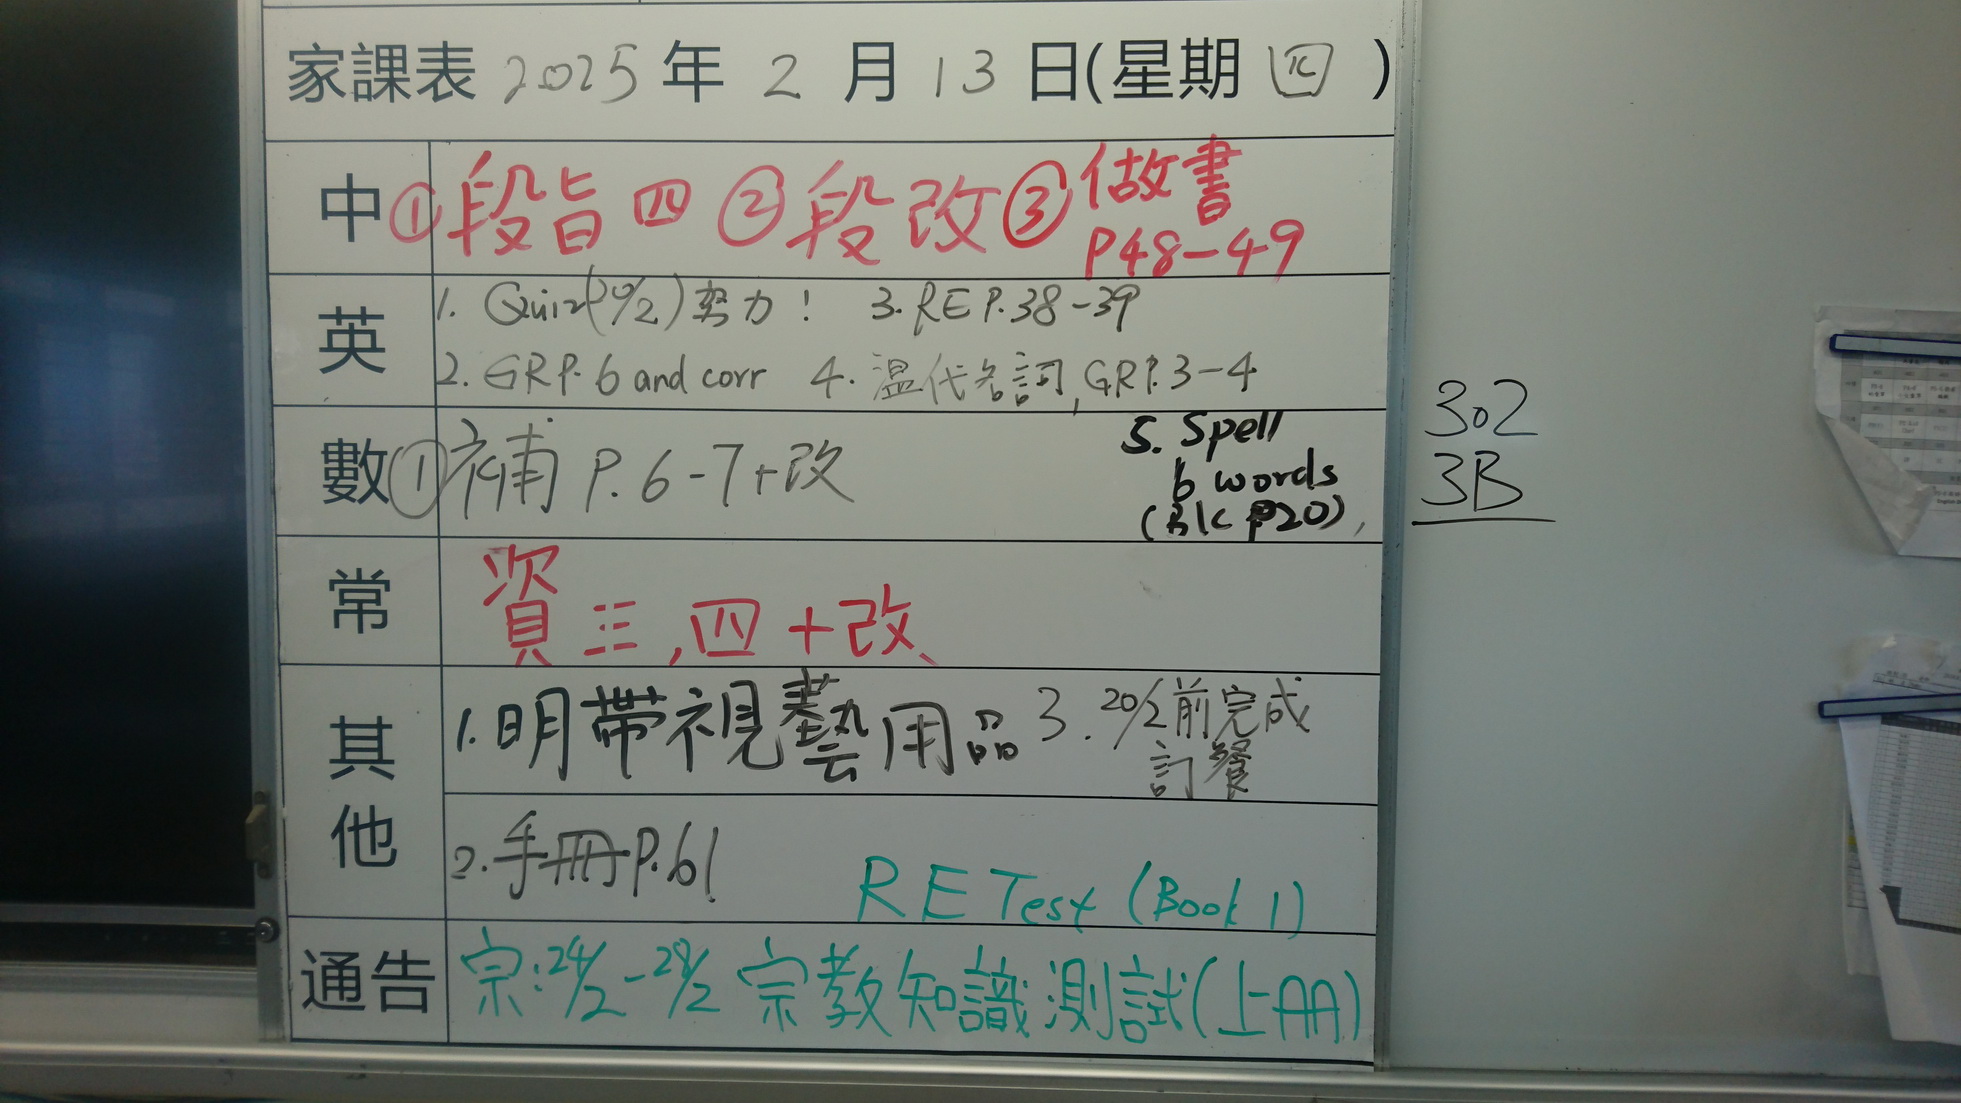 家課表 2025 年 2 月 13 日(星期 四 )
中 ① 段旨四 ② 段改 ③ 做書 P48-49
英 1. Quiz(20/2)努力! 3. RE P.38-39
2. GR P. 6 and corr 4. 溫代名詞, GR P.3-4
5. Spell
6 words
(Blc p20),
數 ① 補 P. 6-7+改
常 資三,四+改
其他 1. 明帶視藝用品 3. 20/2前完成
訂餐
2. 手冊P.61
RE Test (Book 1)
通告 宗:24/2-28/2 宗教知識測試(上冊)
302
3B